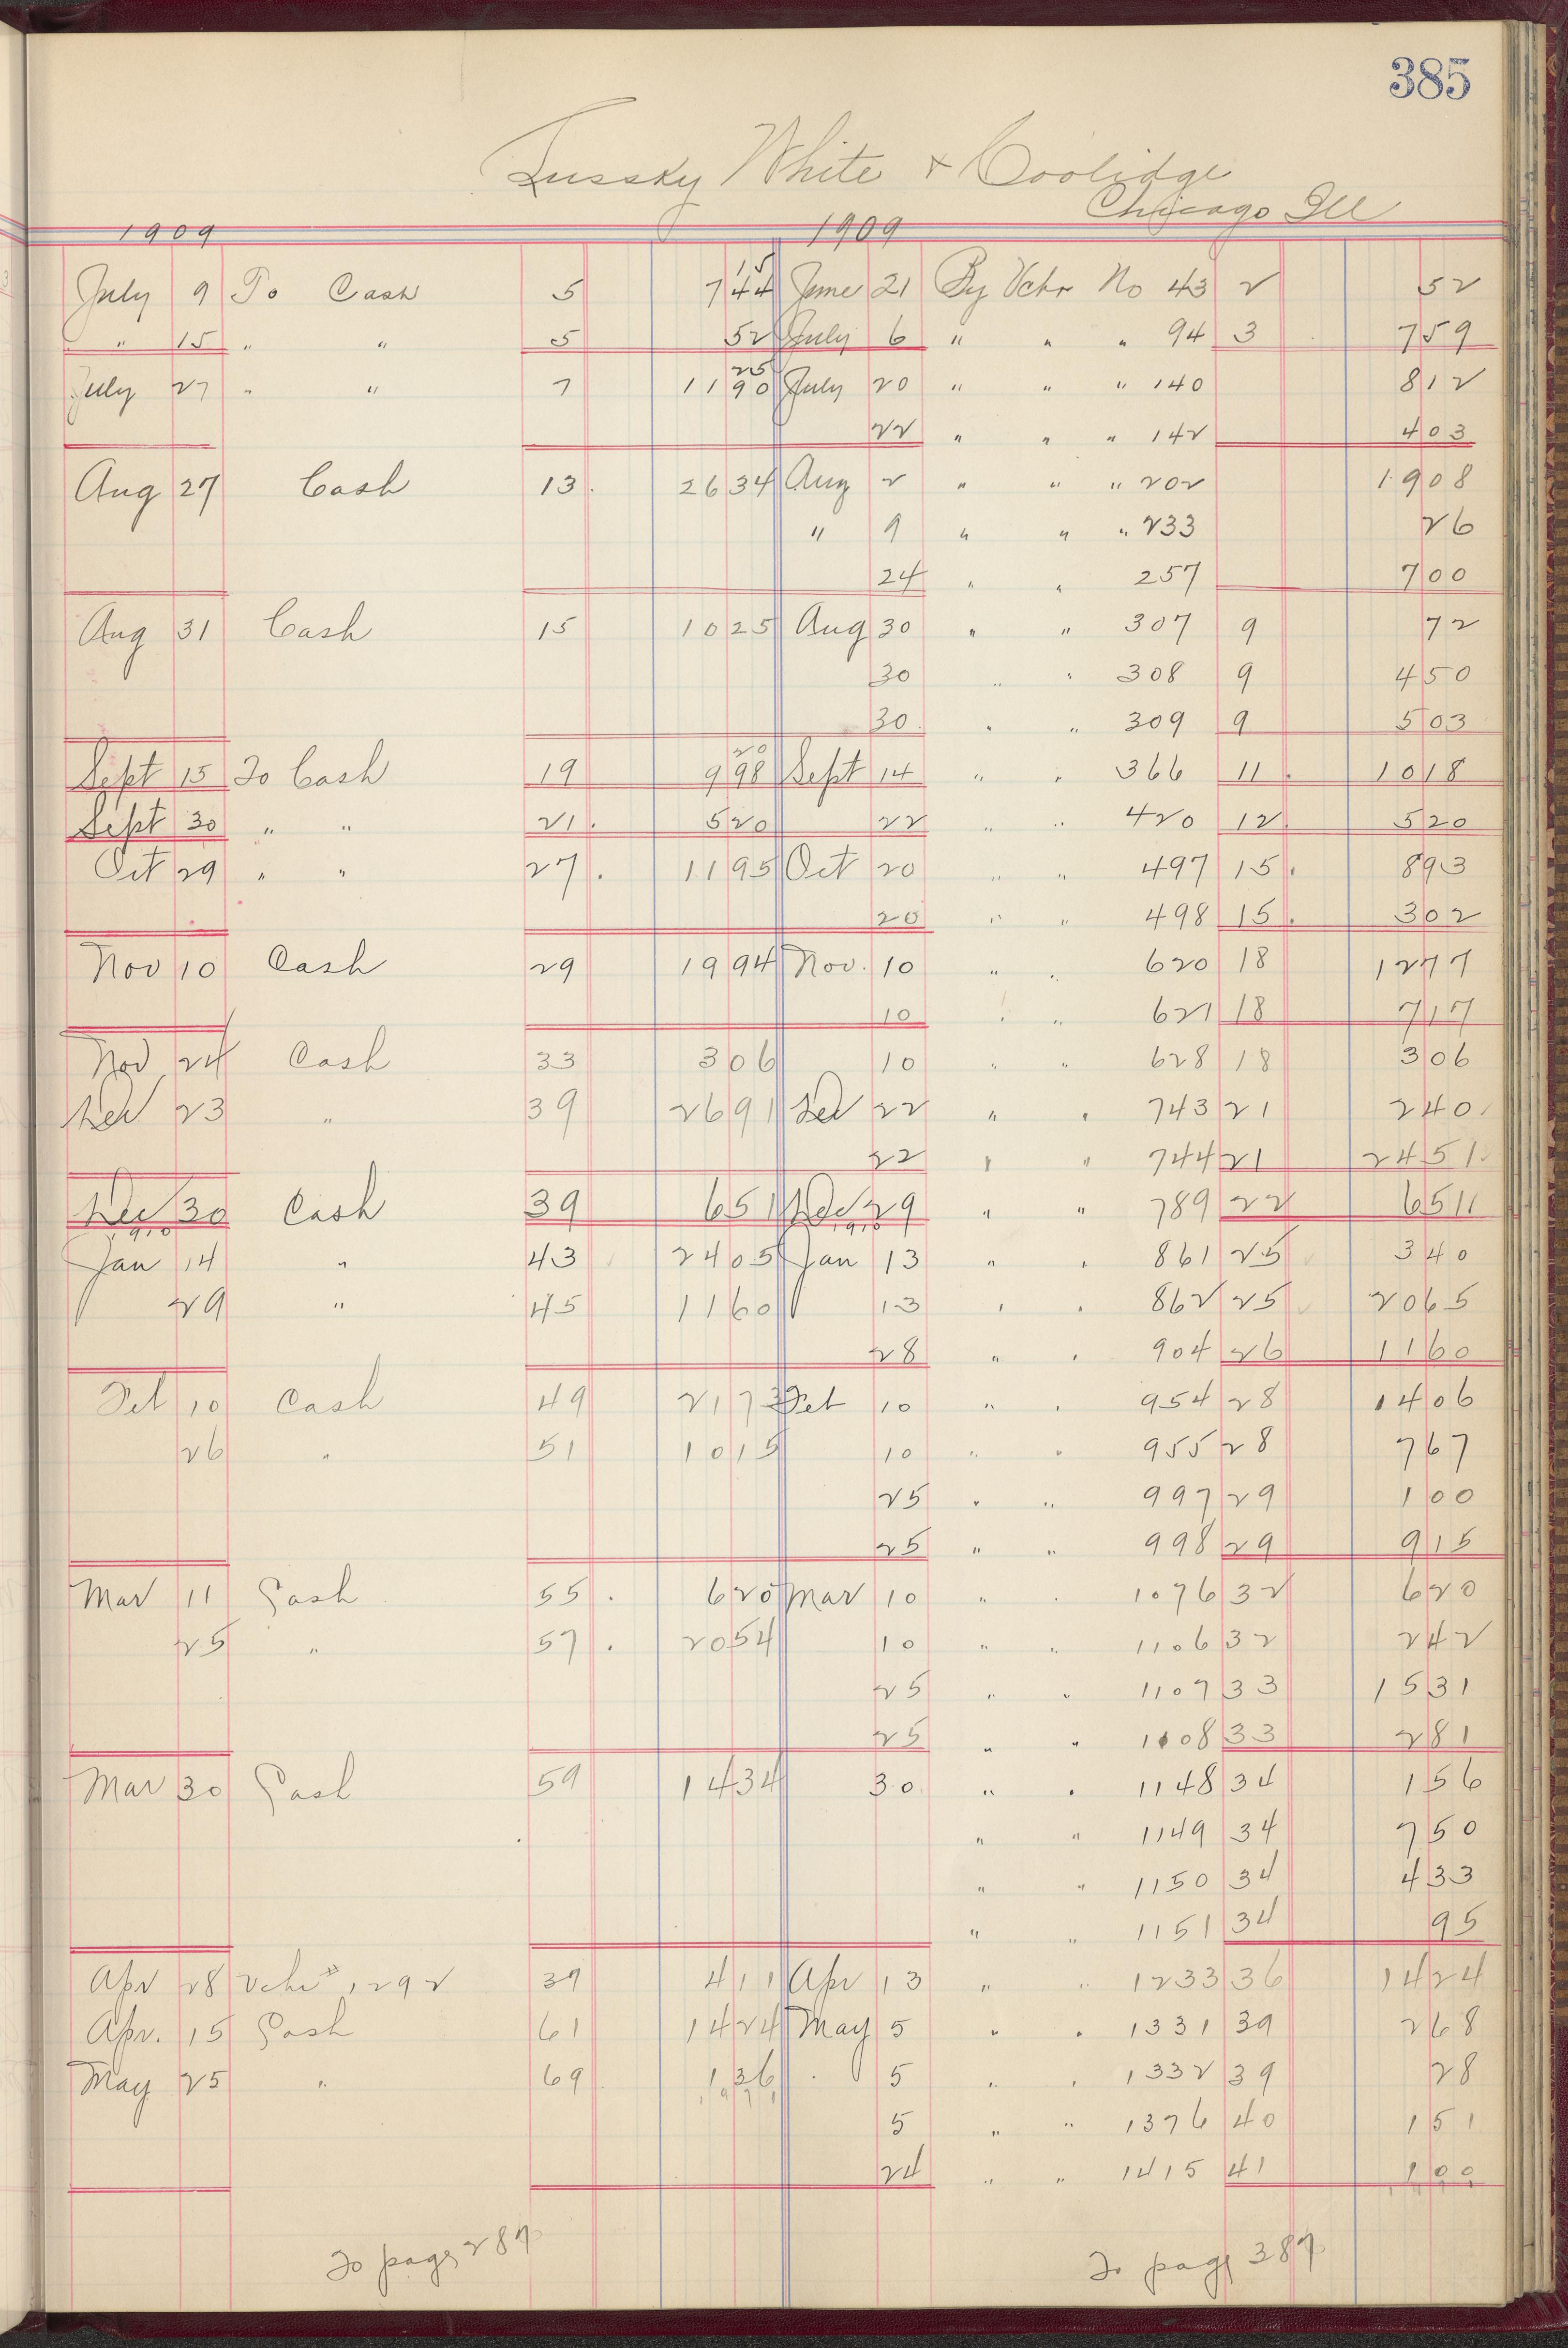 385
Tussky White & Coolidge
Chicago Ill
1909 1909
15
July 9 To Cash 5 7 44 June 21 By Vchr No 43 2 52
" 15 " " 5 52 July 6 " " " 94 3 7 59
25
July 27 " " 7 11 90 July 20 " " " 140 8 12
22 " " " 142 4 03
Aug 27 Cash 13. 26 34 Aug 2 " " " 202 19 08
" 9 " " " 233 26
24 " " 257 7 00
Aug 31 Cash 15 10 25 Aug 30 " " 307 9 72
30 " " 308 9 4 50
30 " " 309 9 5 03
20
Sept 15 To Cash 19 9 98 Sept 14 " " 366 11. 10 18
Sept 30 " " 21. 5 20 22 " " 420 12. 5 20
Oct 29 " " 27. 11 95 Oct 20 " " 497 15. 8 93
20 " " 498 15. 3 02
Nov 10 Cash 29 19 94 Nov. 10 " " 620 18 12 77
10 " " 621 18 7 17
Nov 24 Cash 33 3 06 10 " " 628 18 3 06
Dec 23 " 39 26 91 Dec 22 " " 743 21 2 40
22 " " 744 21 24 51
Dec 30 Cash 39 6 51 Dec 29 " " 789 22 6 51
1910 1910
Jan 14 " 43 24 05 Jan 13 " " 861 25 3 40
29 " 45 11 60 13 " " 862 25 20 65
28 " " 904 26 11 60
Feb 10 Cash 49 21 73 Feb 10 " " 954 28 14 06
26 " 51 10 15 10 " " 955 28 7 67
25 " " 997 29 1 00
25 " " 998 29 9 15
Mar 11 Cash 55. 6 20 Mar 10 " " 1076 32 6 20
25 " 57. 20 54 10 " " 1106 32 2 42
25 " " 1107 33 15 31
25 " " 1108 33 2 81
Mar 30 Cash 59 14 34 30 " " 1148 34 1 56
" " 1149 34 7 50
" " 1150 34 4 33
" " 1151 34 95
Apr 28 Vchr # 1292 39 4 11 Apr 13 " " 1233 36 14 24
Apr. 15 Cash 61 14 24 May 5 " " 1331 39 2 68
May 25 " 69 1 36 5 " " 1332 39 28
5 " " 1376 40 1 51
24 " " 1415 41 1 00
To page 287 To page 387